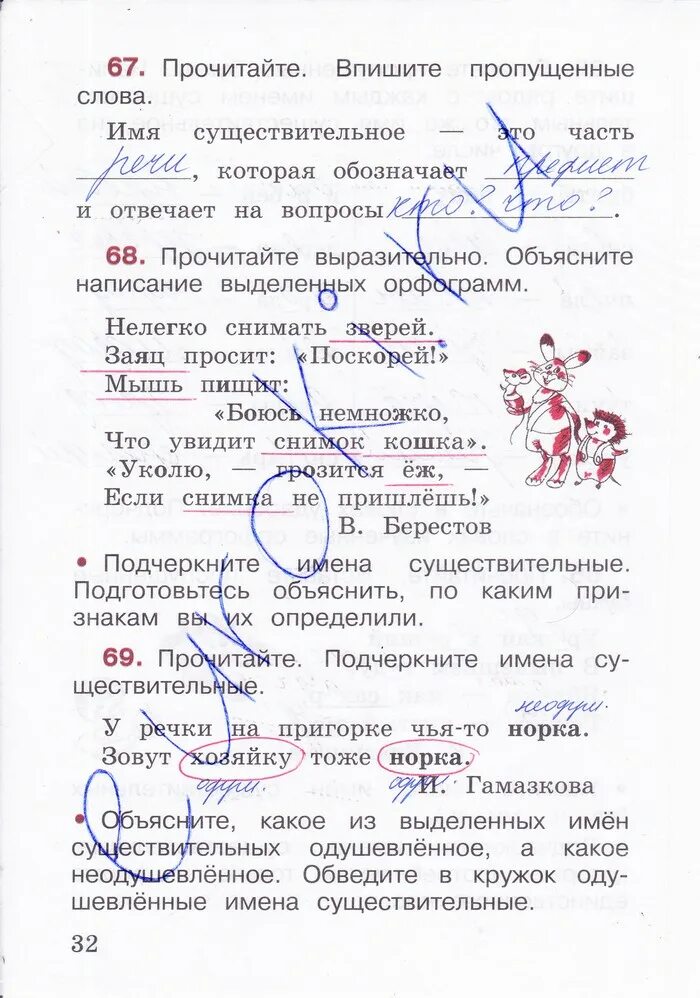 67. Прочитайте. Впишите пропущенные
слова.
Имя существительное — это часть
речи, которая обозначает предмет
и отвечает на вопросы кто? что?.
68. Прочитайте выразительно. Объясните
написание выделенных орфограмм.
Нелегко снимать зверей.
Заяц просит: «Поскорей!»
Мышь пищит:
«Боюсь немножко,
Что увидит снимок кошка».
«Уколю, — грозится ёж, —
Если снимка не пришлёшь!»
В. Берестов
• Подчеркните имена существительные.
Подготовьтесь объяснить, по каким при-
знакам вы их определили.
69. Прочитайте. Подчеркните имена су-
ществительные.
неодуш.
У речки на пригорке чья-то норка.
Зовут хозяйку тоже норка.
одуш. одуш.
И. Гамазкова
• Объясните, какое из выделенных имён
существительных одушевлённое, а какое
неодушевлённое. Обведите в кружок оду-
шевлённые имена существительные.
32